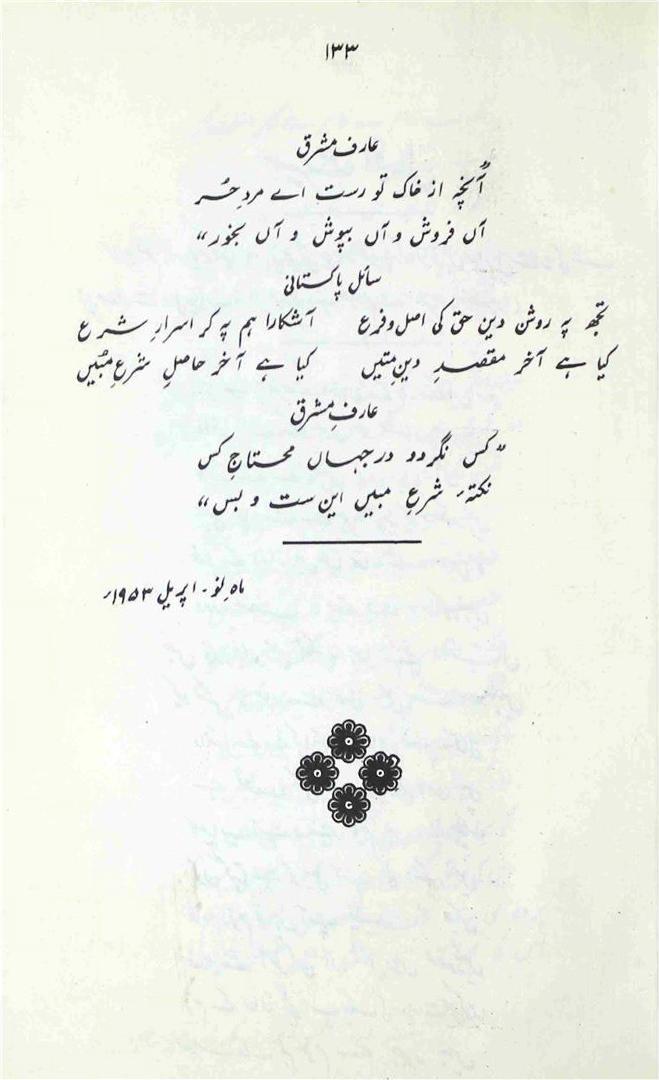 ۱۳۳
عارف مشرق
"آنچہ از خاک تو رست اے مردِ حُر
آں فروش و آں بپوش و آں بخور"
سائل پاکستانی
تجھ پہ روشن دینِ حق کی اصل و فرع آشکارا ہم پہ کر اسرارِ شرع
کیا ہے آخر مقصدِ دینِ متیں کیا ہے آخر حاصلِ شرعِ مُبیں
عارفِ مشرق
"کس نگردد در جہاں محتاجِ کس
نکتۂ شرعِ مبیں این ست و بس"
ماہِ نو۔ اپریل ۱۹۵۳ء